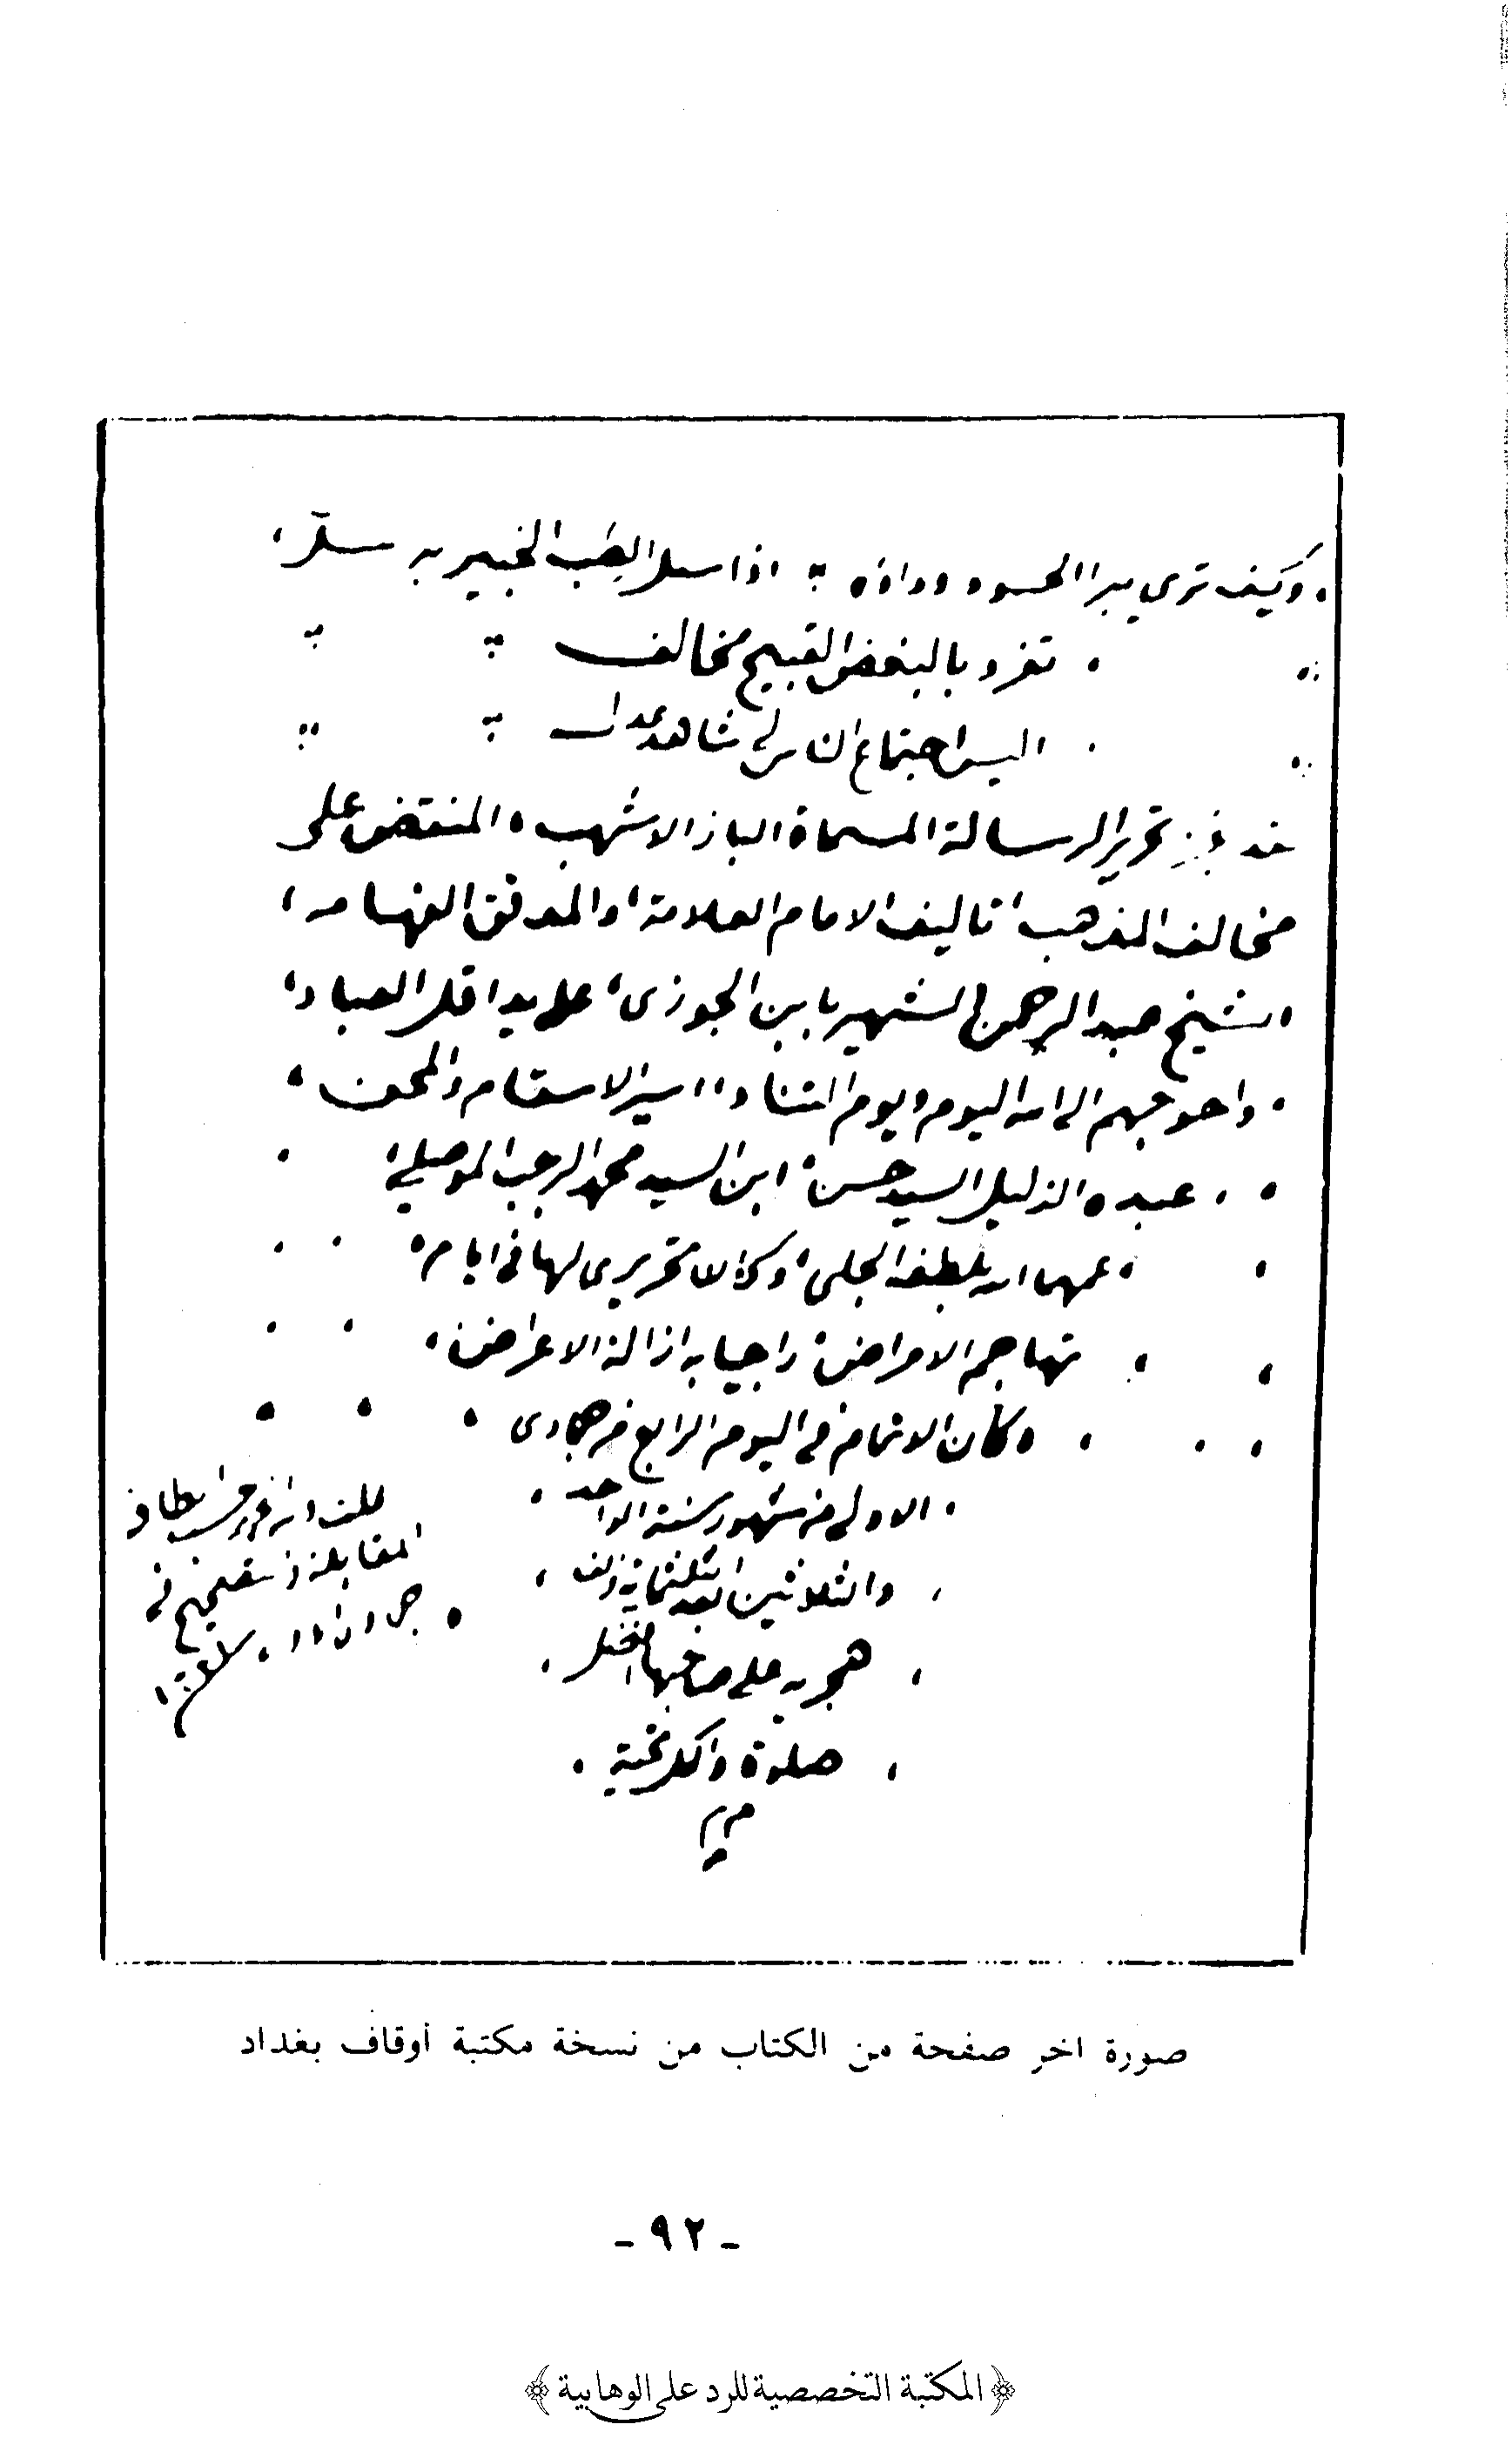 وكيف ترى يبرا الحسود وداؤه اذا سئل الطب الخبير به سلا
تفرد بالبغض القبيح مخالف
اليس اجتماع الناس لي شاهد عدل
تحرير الرسالة المسماة الباز الاشهب المنقض على
مخالف المذهب تاليف الامام العلامة والمدقق الفهامه
الشيخ عبد الرحمن الشهير بابن الجوزى على يد اقل العباد
واحوجهم الى الله اليوم ويوم التناد اسير الاسقام والمحن
عبده الذليل السيد حسن ابن السيد محمد الرجب الموصلي
عمهما الله بلطفه الجلى وكان تحريرى لها فى ايام
تهاجم الامراض راجيا به ازالة الاعراض
وكان الاتمام فى اليوم الرابع من جمادى
الاولى من شهور سنة الواحد
والثلوثين بعد الثلثماية والف
هجريه على صاحبها افضل
صلوة واكمل تحية
المقابلة
صورة اخر صفحة من الكتاب من نسخة مكتبة أوقاف بغداد
- ٩٢ -
﴿ المكتبة التخصصية للرد على الوهابية ﴾